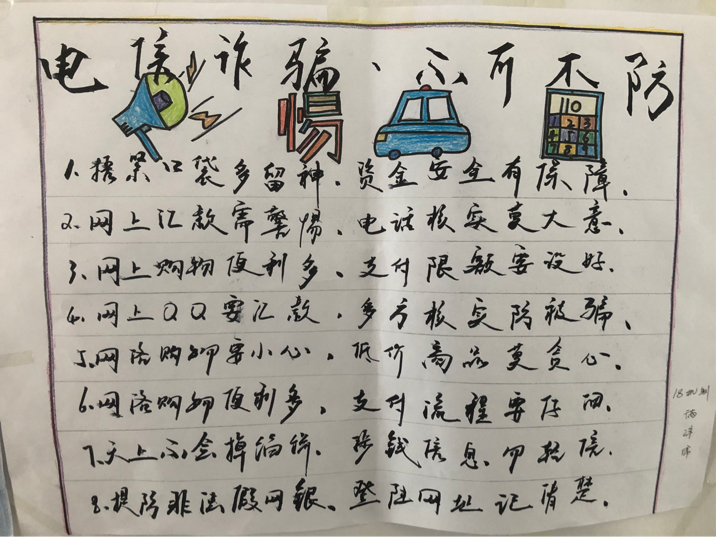 电信诈骗、不可不防
惕
110
1 2 3
4 5 6
7 8 9
1、捂紧口袋多留神、资金安全有保障、
2、网上汇款需警惕、电话核实莫大意、
3、网上购物便利多、支付限额要设好.
4、网上QQ要汇款,多方核实防被骗、
5、网络购物要小心,低价商品莫贪心、
6、网络购物便利多,支付流程要仔细、
7、天上不会掉馅饼.涉钱信息、勿轻信.
8、提防非法假网银、登陆网址记清楚、